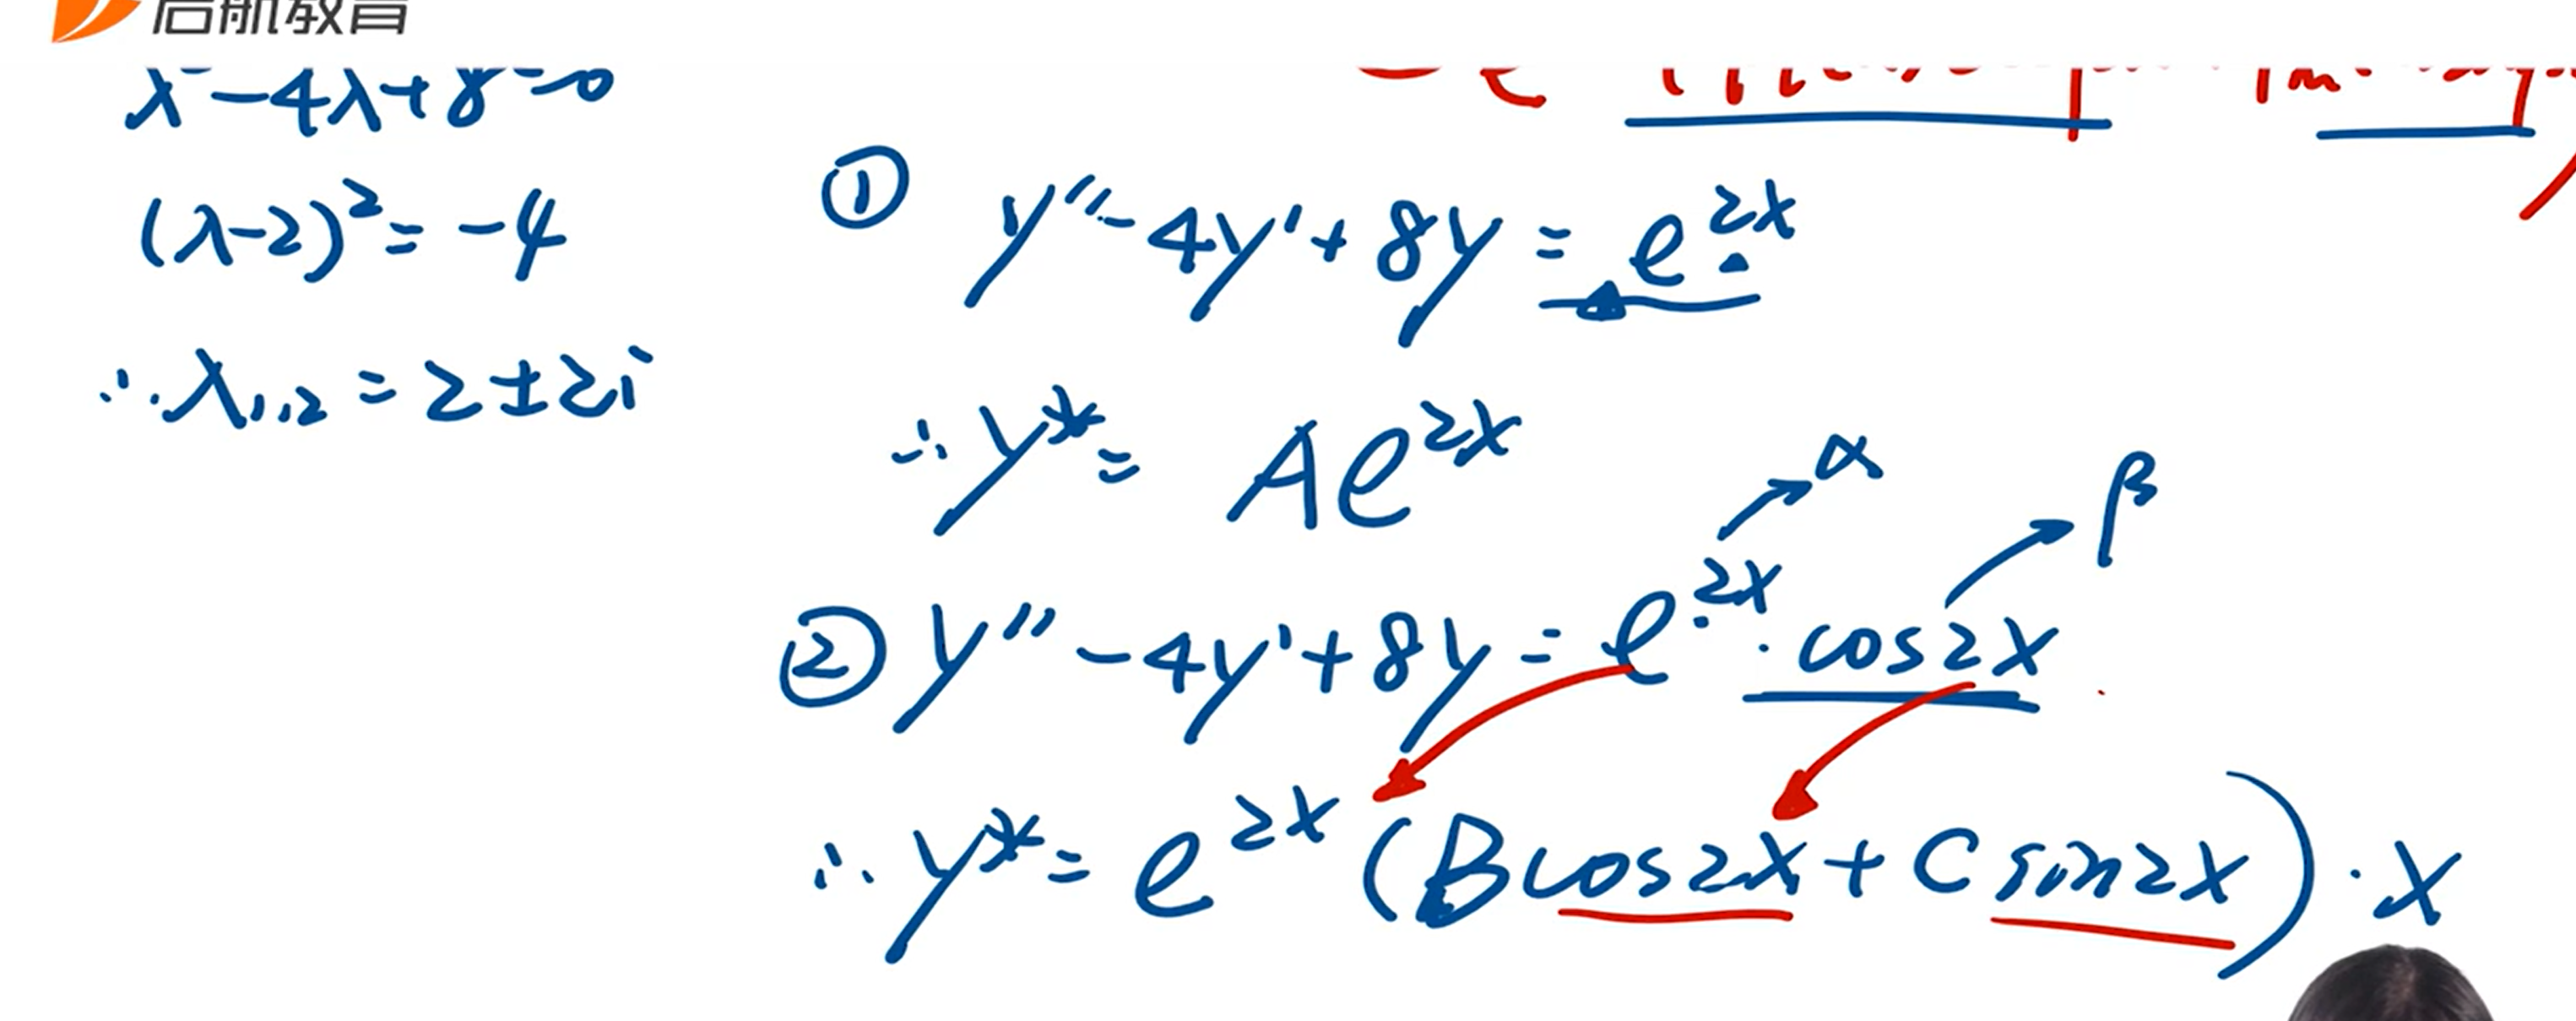 启航教育
λ²-4λ+8=0
(λ-2)²=-4
∴λ₁,₂=2±2i
① y″-4y′+8y=e^{2x}
∴y*=Ae^{2x}
α
β
② y″-4y′+8y=e^{2x}·cos2x
∴y*=e^{2x}(Bcos2x+Csin2x)·x